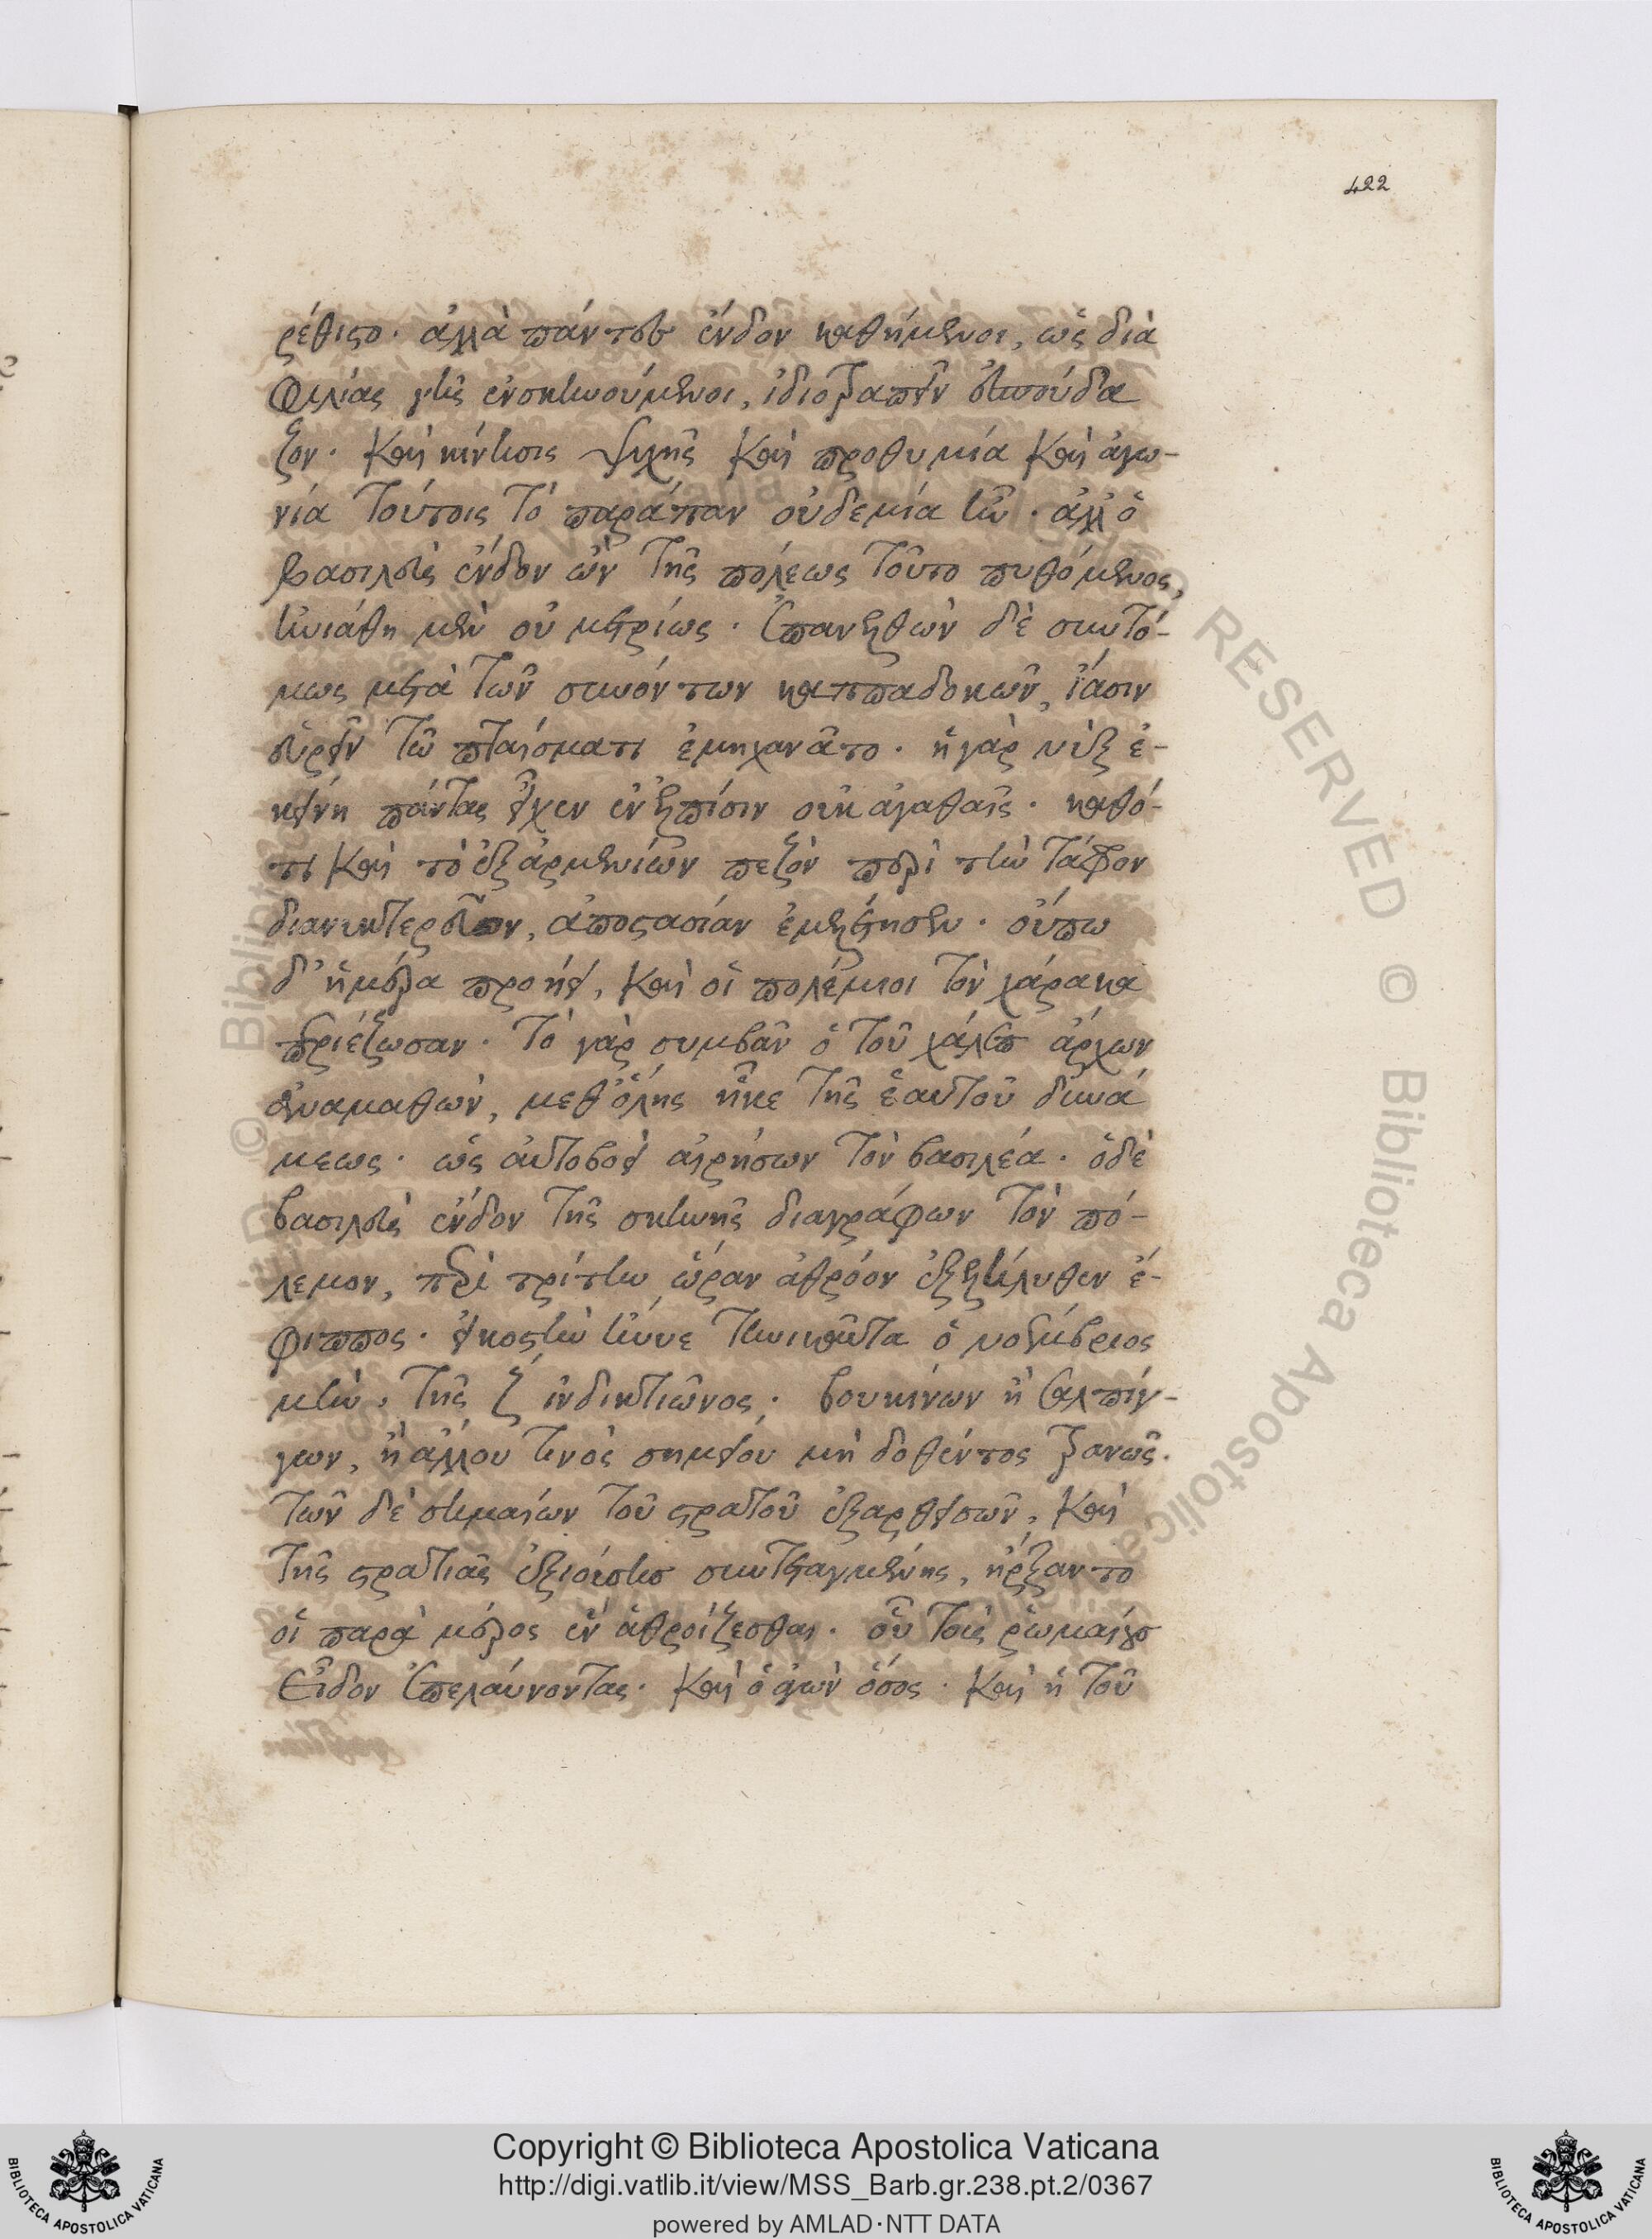 422
ρέθιστο. ἀλλὰ πάντες ἔνδον καθήμενοι, ὡς διὰ
φιλίας γῆς ἐνσκηνούμενοι, ἰδιοπραγεῖν ἐσπούδα
ζον. καὶ κίνησις ψυχῆς καὶ προθυμία καὶ ἀγω-
νία τούτοις τὸ παράπαν οὐδεμία ἦν. ἀλλ' ὁ
βασιλεὺς ἔνδον ὢν τῆς πόλεως τοῦτο πυθόμενος,
ἠνιάθη μὲν οὐ μετρίως. ἐπανελθὼν δὲ συντό-
μως μετὰ τῶν συνόντων καππαδοκῶν, ἴασιν
εὑρεῖν τῶ πταίσματι ἐμηχανᾶτο. ἡ γὰρ νὺξ ἐ-
κείνη πάντας εἶχεν ἐν ἐλπίσιν οὐκ ἀγαθαῖς. καθό-
τι καὶ τὸ ἐξ ἀρμενίων πεζὸν περὶ τὴν τάφρον
διανυκτερεῦον, ἀποστασίαν ἐμελέτησεν. οὔπω
δ' ἡμέρα προήει, καὶ οἱ πολέμιοι τὸν χάρακα
περιέζωσαν. τὸ γὰρ συμβὰν ὁ τοῦ χάλεπ ἄρχων
ἀναμαθὼν, μεθ' ὅλης ἧκε τῆς ἑαυτοῦ δυνά
μεως. ὡς αὐτοβοεὶ αἱρήσων τὸν βασιλέα. ὁ δὲ
βασιλεὺς ἔνδον τῆς σκηνῆς διαγράφων τὸν πό-
λεμον, περὶ τρίτην ὥραν ἀθρόον ἐξεληλύθεν ἔ-
φιππος. εἰκοστὴν ἤνυε τηνικαῦτα ὁ νοέμβριος
μὴν, τῆς ζ ἰνδικτιῶνος. βουκίνων ἢ σαλπίγ-
γων, ἢ ἄλλου τινὸς σημείου μὴ δοθέντος τρανῶς.
τῶν δὲ σημαιῶν τοῦ στρατοῦ ἐξαρθεισῶν, καὶ
τῆς στρατιᾶς ἐξιούσης συντεταγμένης, ἤρξαντο
οἱ παρὰ μέρος ἓν ἀθροίζεσθαι. οὓς τοὺς ῥωμαίους
εἶδον ἐπελαύνοντας. καὶ ὁ ἀγὼν ὅσος. καὶ ἡ τοῦ
Copyright © Biblioteca Apostolica Vaticana
http://digi.vatlib.it/view/MSS_Barb.gr.238.pt.2/0367
powered by AMLAD·NTT DATA